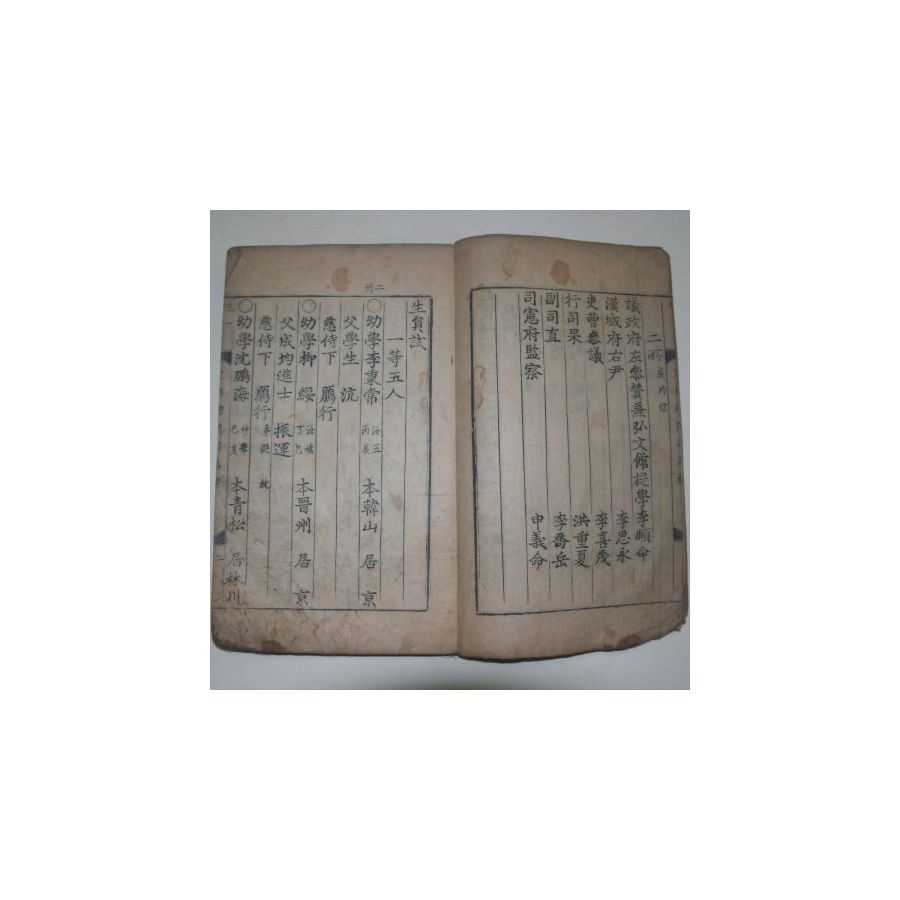 二
議政府左參賛兼弘文館提學李頥命
漢城府右尹 李思永
吏曹參議 李喜茂
行司果 洪重夏
副司直 李喬岳
司憲府監察 申義命
生負試
一等五人
二所
〇幼學李秉常 汝五 丙辰 本韓山 居京
父學生 沆
慈侍下 鴈行
〇幼學柳 綏 丁巳 本晋州 居京
父成均進士 振運
慈侍下 鴈行
〇幼學沈鵬海 本青松 居林川